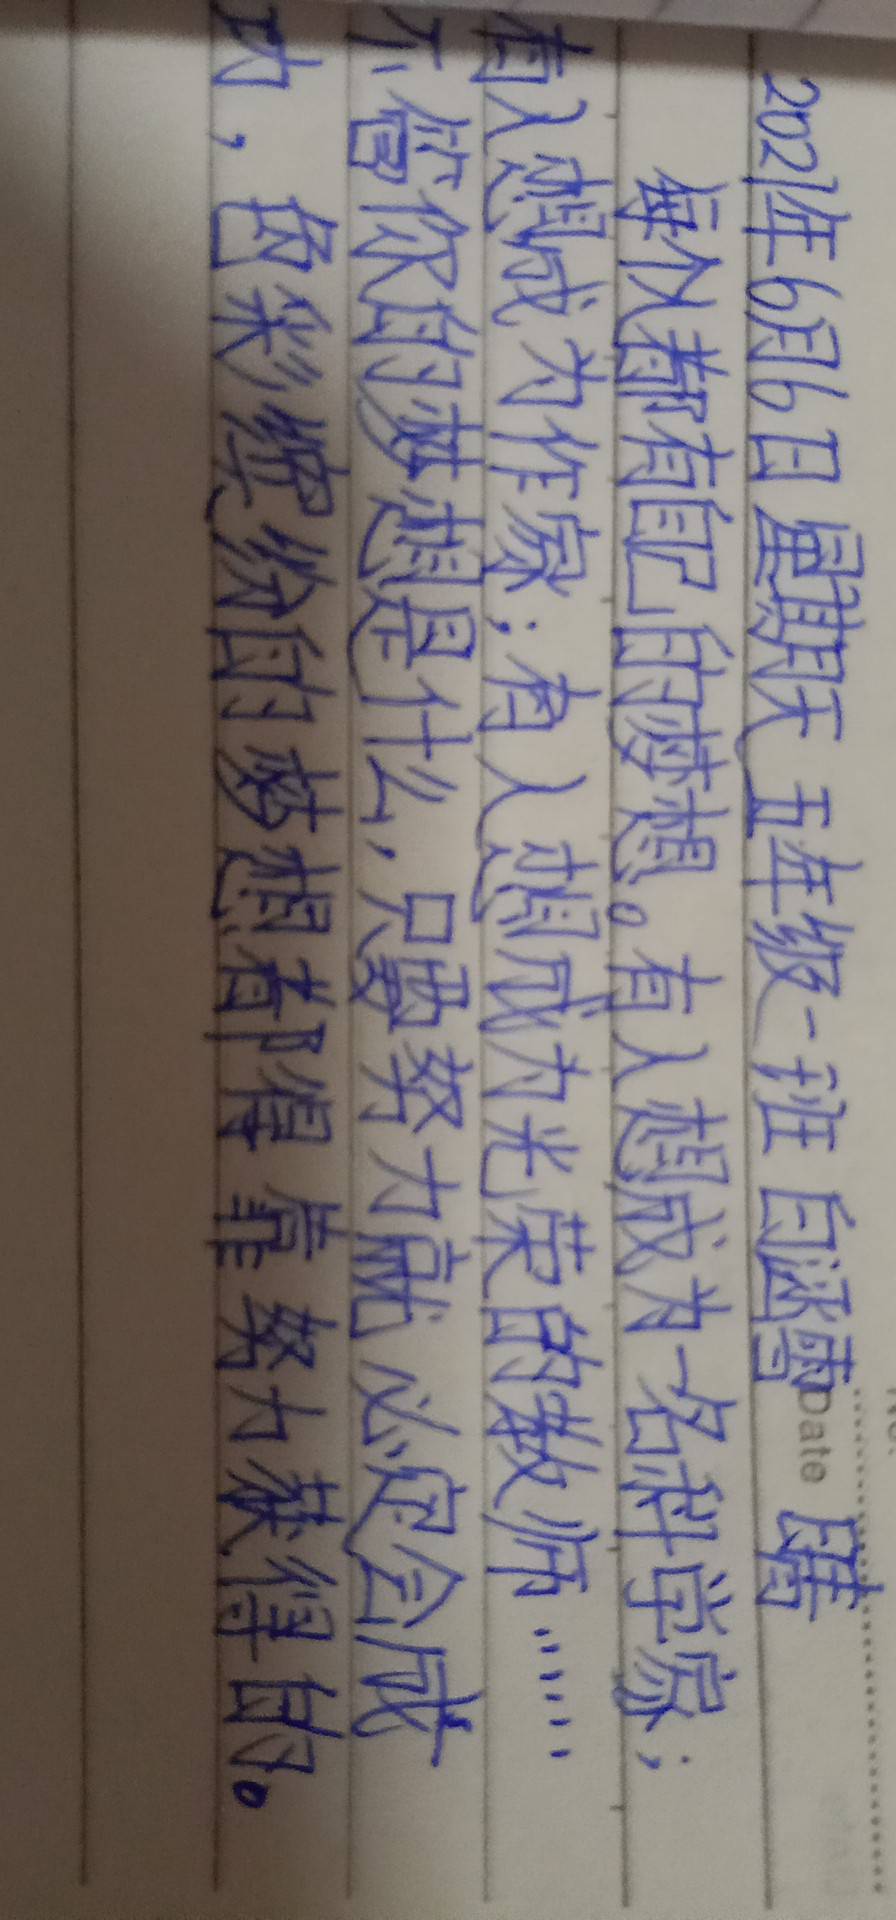 2021年6月6日 星期天 五年级一班 白涵雪 晴
Date
每个人都有自己的梦想。有人想成为一名科学家；
有人想成为作家；有人想成为光荣的教师……
不管你的梦想是什么，只要努力就必定会成
功，色彩缤纷的梦想都得靠努力获得的。